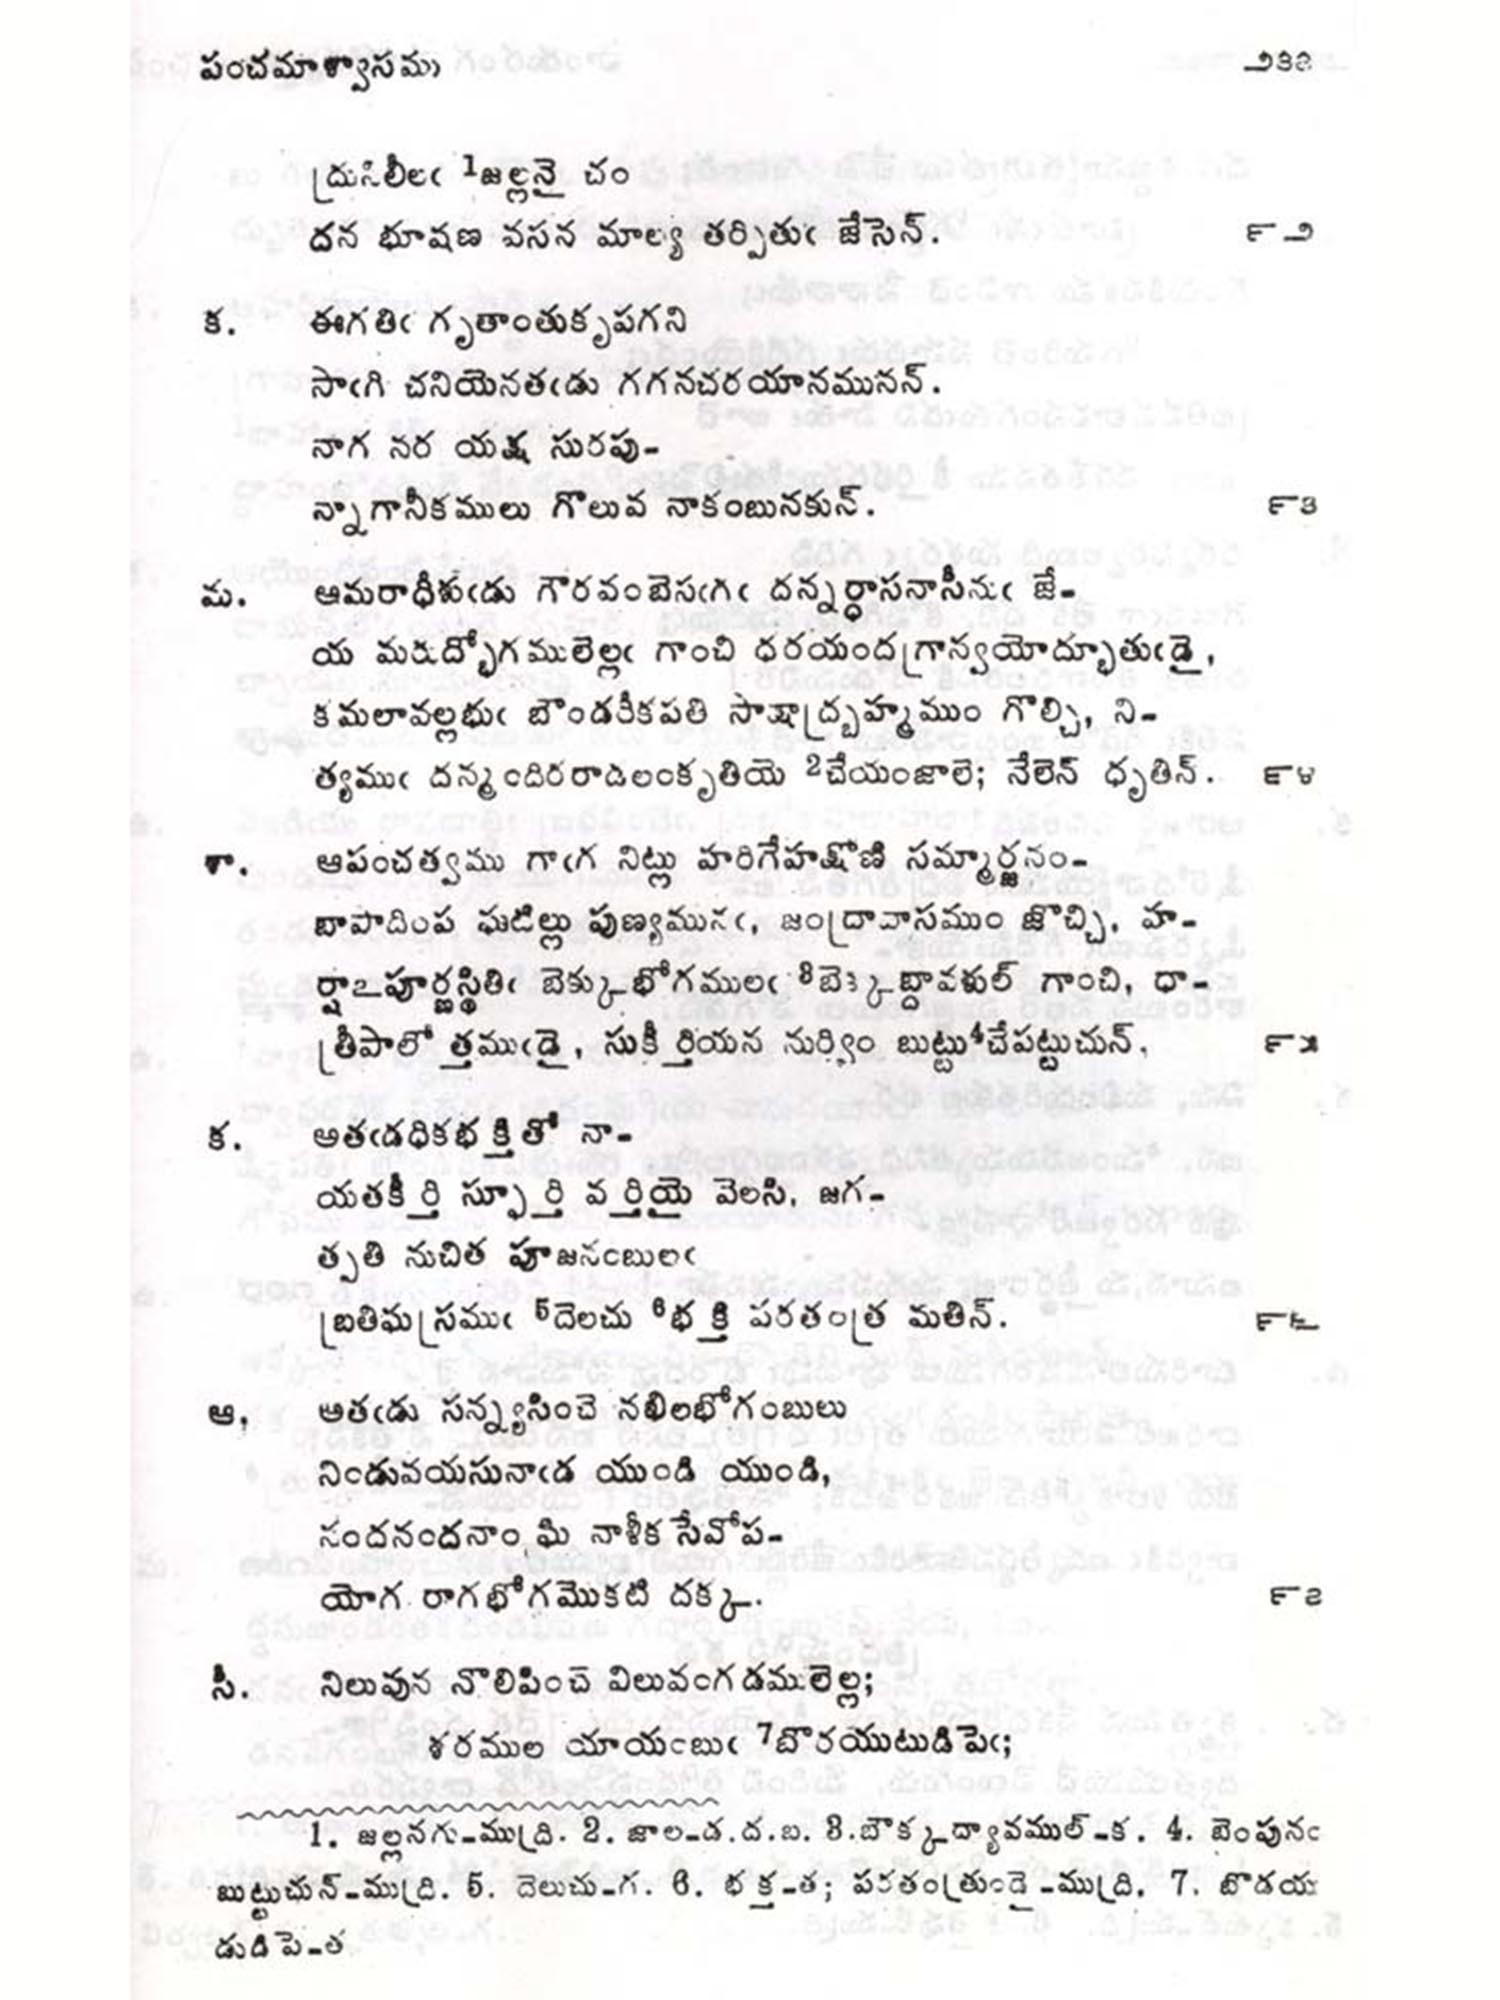 పంచమాశ్వాసము ౨౩౩
ద్రుసిలీలఁ 1జల్లనై చం
దన భూషణ వసన మాల్య తర్పితుఁ జేసెన్. ౯౨
క. ఈగతిఁ గృతాంతుకృపగని
సాఁగి చనియెనతఁడు గగనచరయానమునన్.
నాగ నర యక్ష సురపు-
న్నాగానీకములు గొలువ నాకంబునకున్. ౯౩
మ. ఆమరాధీశుఁడు గౌరవంబెసఁగఁ దన్నర్ధాసనాసీనుఁ జే-
య మరుద్భోగములెల్లఁ గాంచి ధరయందగ్రాన్వయోద్భూతుఁడై,
కమలావల్లభుఁ బౌండరీకపతి సాక్షాద్బ్రహ్మముం గొల్చి, ని-
త్యముఁ దన్మందిరరాడలంకృతియె 2చేయంజాలె; నేలెన్ ధృతిన్. ౯౪
శా. ఆపంచత్వము గాఁగ నిట్లు హరిగేహక్షోణి సమ్మార్జనం-
బాపాదింప ఘటిల్లు పుణ్యమునఁ, జంద్రావాసముం జొచ్చి, హ-
ర్షాఽపూర్ణస్థితిఁ బెక్కుభోగములఁ 3బెక్కబ్దావళుల్ గాంచి, ధా-
త్రీపాలోత్తముఁడై, సుకీర్తియన నుర్విం బుట్టు4చేపట్టుచున్. ౯౫
క. ఆతఁడధికభక్తితో నా-
యతకీర్తి స్ఫూర్తి వర్తియై వెలసి, జగ-
త్పతి నుచిత పూజనంబులఁ
బ్రతిఘస్రముఁ 5దెలచు 6భక్తి పరతంత్ర మతిన్. ౯౬
ఆ. ఆతఁడు సన్న్యసించె నఖిలభోగంబులు
నిండువయసునాఁడ యుండి యుండి,
నందనందనాంఘ్రి నాళీకసేవోప-
యోగ రాగభోగమొకటి దక్క. ౯౭
సీ. నిలువున నొలిపించె విలువంగడములెల్ల;
శరముల యాయంబుఁ 7బొరయుటుడిపెఁ;
1. జల్లనగు-ముద్రి. 2. జాల-డ.ద.బ. 3.బౌక్కద్యావముల్-క. 4. బెంపునం
బుట్టుచున్-ముద్రి. 5. దెలుచు-గ. 6. భక్త-త; పరతంత్రుండై-ముద్రి. 7. బొడయ
డుడిపె-త